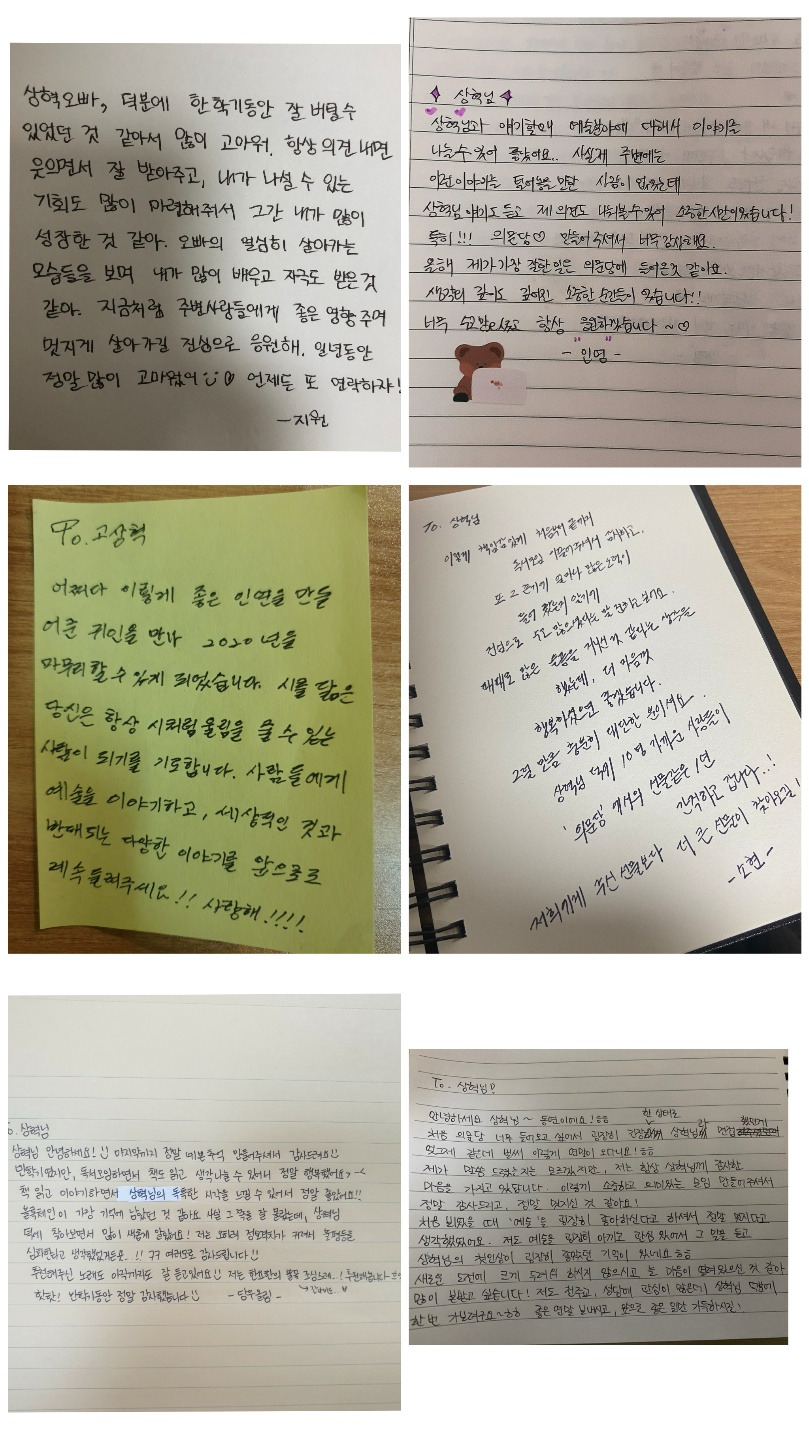 상혁오빠, 덕분에 한학기동안 잘 버틸수
있었던 것 같아서 많이 고마워. 항상 의견 내면
웃으면서 잘 받아주고, 내가 나설 수 있는
기회도 많이 마련해줘서 그간 내가 많이
성장한 것 같아. 오빠의 열심히 살아가는
모습들을 보며 내가 많이 배우고 자극도 받은것
같아. 지금처럼 주변사람들에게 좋은 영향 주며
멋지게 살아가길 진심으로 응원해. 일년동안
정말 많이 고마웠어 언제든 또 연락하자!
-지원
상혁님
상혁님과 얘기할때 예술분야에 대해서 이야기를
나눌수 있어 좋았어요.. 사실 제 주변에는
이런 이야기를 털어놓을만한 사람이 없었는데
상혁님 얘기도 듣고 제 의견도 나눠볼수있어 소중한시간이었습니다!
특히!!! 의문당♡ 만들어 주셔서 너무 감사해요.
올해 제가 가장 잘한 일은 의문당에 들어온것 같아요.
생각의 깊이도 깊어진 소중한 순간들이 있습니다!!
너무 수고많으셨고 항상 응원하겠습니다 ~♡
- 인영 -
To. 고상혁
어쩌다 이렇게 좋은 인연을 만들
어준 귀인을 만나 2020년을
마무리할 수 있게 되었습니다. 시를 닮은
당신은 항상 시처럼 울림을 줄 수 있는
사람이 되기를 기도합니다. 사람들에게
예술을 이야기하고, 세상적인 것과
반대되는 다양한 이야기를 앞으로도
계속 들려주세요!! 사랑해!!!!
To. 상혁님
이렇게 책임감있게 처음부터 끝까지
독서모임 이끌어주셔서 감사하고.
또 그 끈기가 얼마나 많은 노력이
들어 갔는지 알기에
진심으로 수고 많으셨다는 말 전하고싶어요.
때때로 많은 순응을 지나친 것 같다는 생각을
했는데, 더 마음껏
행복하셨으면 좋겠습니다.
그럴 만큼 충분히 대단한 분이세요.
상혁님 덕에 10명 가까운 사람들이
'의문당'에서의 선물같은 1년
간직하고 갑니다..!
저희에게 주신 선물보다 더 큰 선물이 찾아오길!
-소현-
상혁님
상혁님 안녕하세요! 마지막까지 정말 예쁜추억 만들어주셔서 감사드려요
반학기였지만, 독서모임하면서 책도 읽고 생각나눌 수 있어서 정말 행복했어요
책 읽고 이야기하면서 상혁님의 독특한 시각을 느낄 수 있어서 정말 좋았어요!!
블록체인이 가장 기억에 남았던 것 같아요 사실 그 쪽을 잘 몰랐는데, 상혁님
덕에 찾아보면서 많이 새롭게 알았어요! 저는 오히려 정보격차가 커져서 불평등을
심화한다고 생각했었거든요..!! ㅋㅋ 여러모로 감사드립니다
추천해주신 노래도 아직까지도 잘 듣고있어요
항상! 반학기동안 정말 감사했습니다
To. 상혁님!
안녕하세요 상혁님~ 동연이에요! ㅎㅎ
처음 의문당 너무 들어오고 싶어서 굉장히 긴장한 상태로 상혁님과 면접 했던게
엊그제 같은데 벌써 이렇게 연말이 오다니요! ㅎㅎ
제가 말씀 드렸는지는 모르겠지만, 저는 항상 상혁님께 감사한
마음을 가지고 있답니다. 이렇게 소중하고 의미있는 모임 만들어주셔서
정말 감사드리고, 정말 멋지신 것 같아요!
처음 뵈었을 때 '예술'을 굉장히 좋아하신다고 하셔서 정말 멋지다고
생각했었어요. 저도 예술을 굉장히 아끼고 관심 있어서 그 말을 듣고
상혁님의 첫인상이 굉장히 좋았던 기억이 있네요 ㅎㅎ
새로운 도전에 크게 두려워 하시지 않으시고 늘 마음이 열려있으신 것 같아
많이 본받고 싶습니다! 저도 전주교, 성당에 관심이 많은데 상혁님 덕분에
한번 가보려구요~ㅎㅎ 좋은 연말 보내시고, 앞으로 좋은 일만 가득하시길!